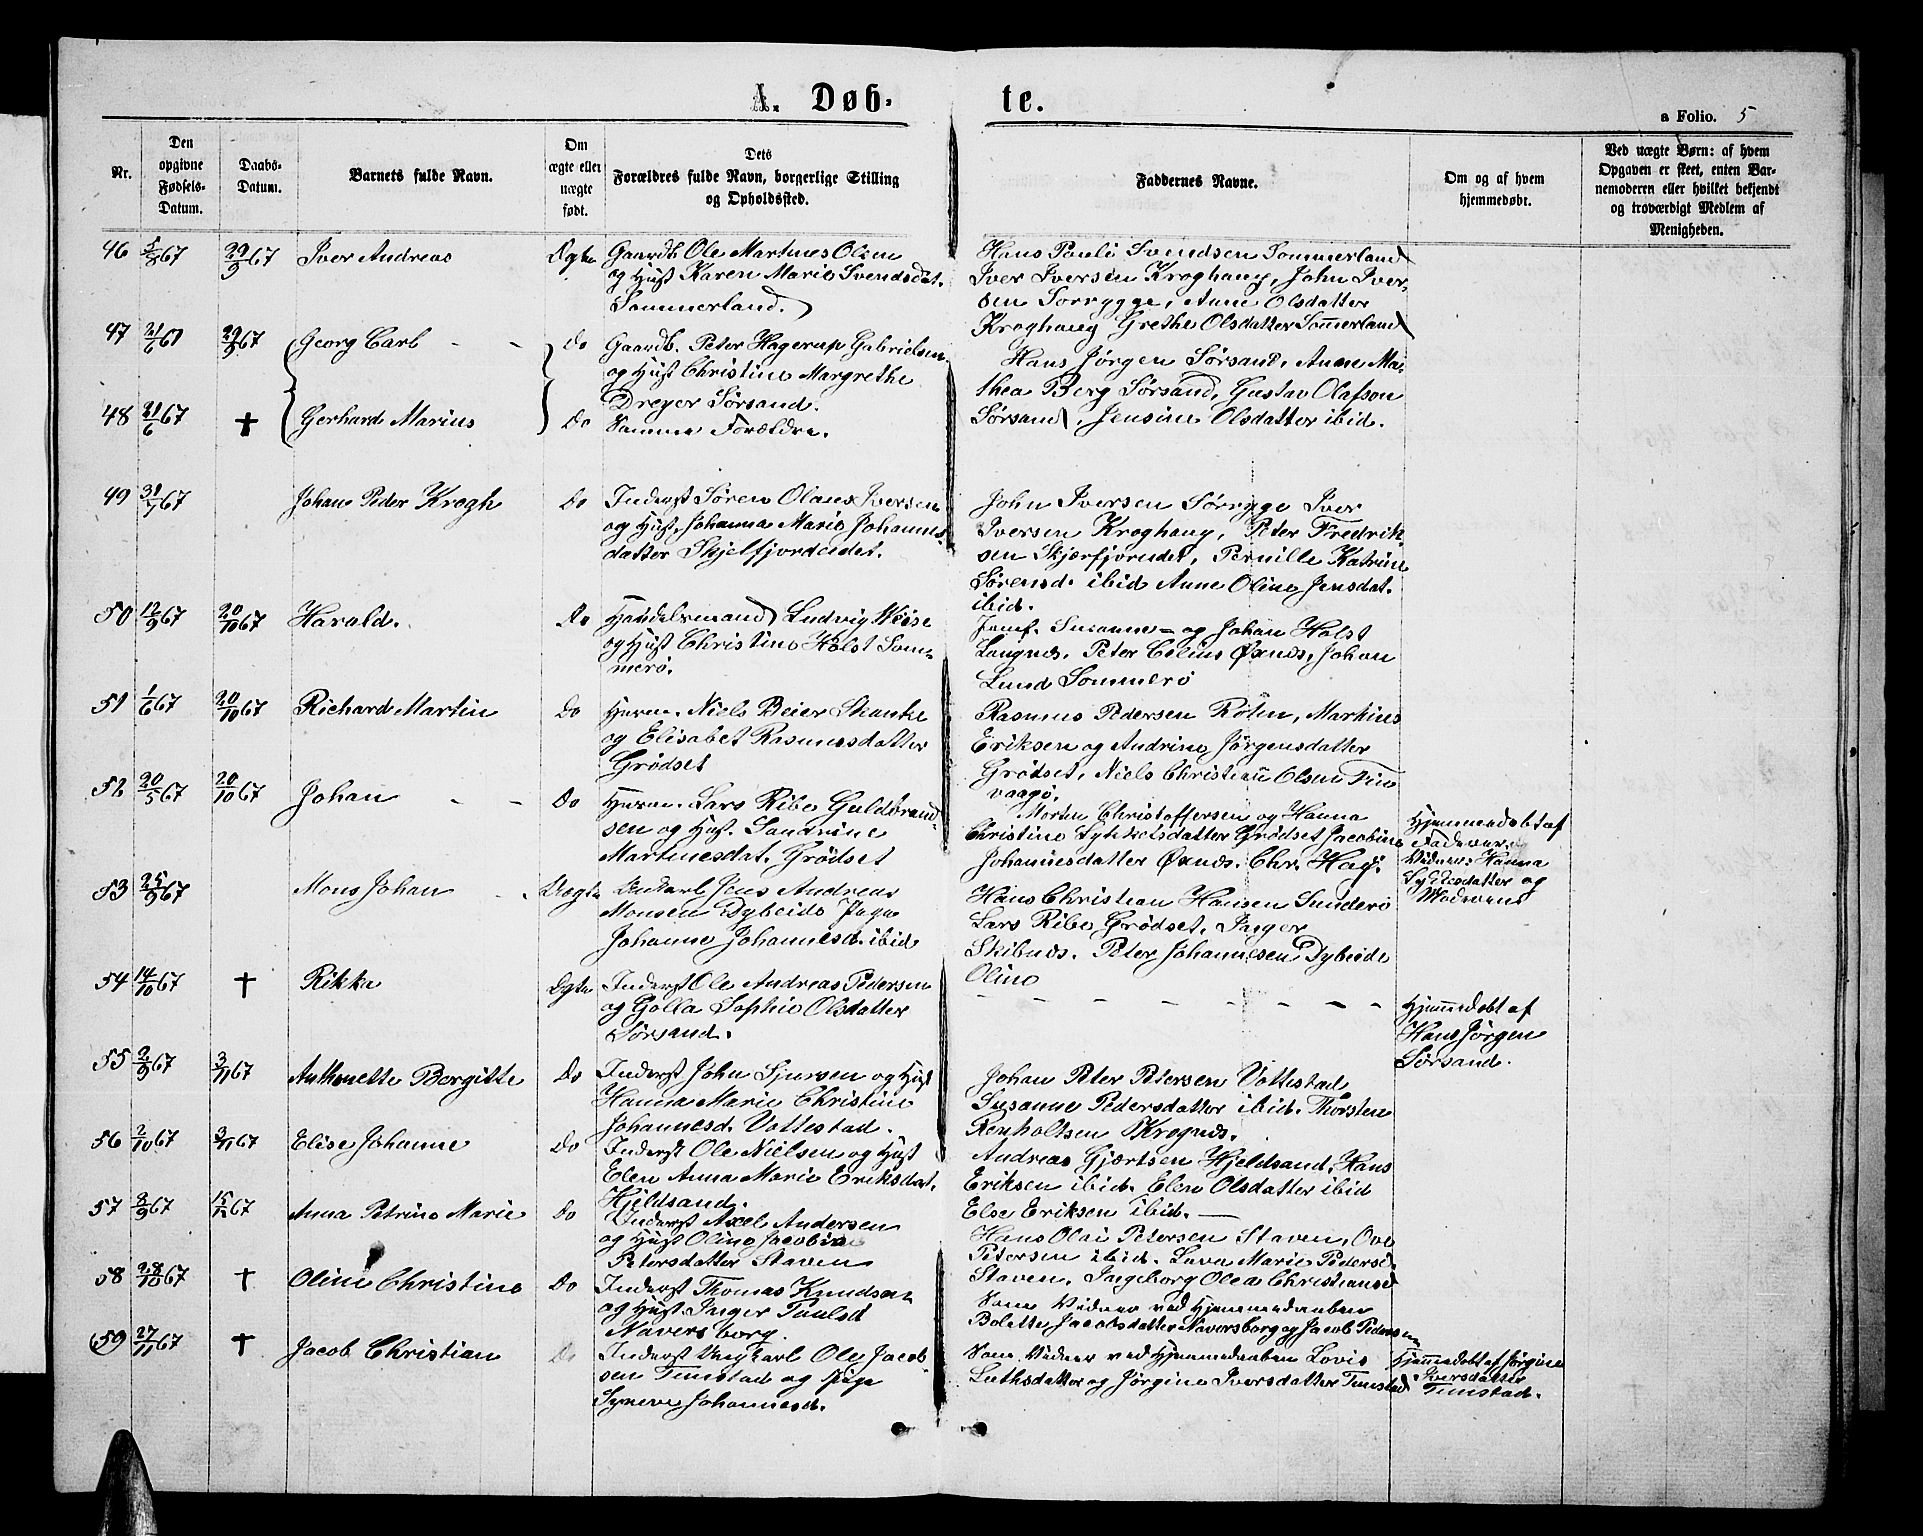 A. Døb-
te.
a Folio. 5
Nr.
Den opgivne Fødsels-Datum.
Daabs-Datum.
Barnets fulde Navn.
Om ægte eller uægte født.
Dets Forældres fulde Navn, borgerlige Stilling og Opholdssted.
Faddernes Navne.
Om og af hvem hjemmedøbt.
Ved uægte Børn: af hvem Opgaven er skeet, enten Barnemoderen eller hvilket bekjendt og troværdigt Medlem af Menigheden.
46 5/8 67 29/9 67 Iver Andreas Ægte Gaardb. Ole Martines Olsen
og Hust Karen Marie Svendsdat.
Sommerland.
Hans Pauli Svendsen Sommerland
Iver Iversen Kroghaug, John Iver-
sen Sørrygge, Anne Olsdatter
Kroghaug Grethe Olsdatter Somerland
47 21/6 67 29/9 67 Georg Carl - - Do Gaardb. Peter Hagerup Gabrielsen
og Hust Christine Margrethe
Dreyer Sørsand.
Hans Jørgen Sørsand, Anne Ma-
thea Berg Sørsand, Gustav Olafson
Sørsand, Jensine Olsdatter ibid.
48 21/6 67 † Gerhard Marius Do Samme Forældre.
49 31/7 67 Johan Peder Krogh Do Inderst Søren Olaus Iversen
og Hust. Johanna Marie Johannes-
datter Skjelfjordeidet.
John Iversen Sørrygge Iver
Iversen Kroghaug, Peter Fredrik-
sen Skjærfjorudet, Pernille Katrine
Sørensd. ibid Anne Oline Jensdat.
ibid.
50 12/9 67 20/10 67 Harald. Do Handelsmand Ludvig Weise
og Hust Christine Holst Som-
merø.
Jomf. Susanne - og Johan Holst
Langnæs. Peter Celius Øxnæs, Johan
Lund Sommerø
51 1/6 67 20/10 67 Richard Martin Do Husm. Niels Beier Skanke
og Elisabet Rasmusdatter
Grødset
Rasmus Pedersen Røten, Martines
Eriksen og Andrine Jørgensdatter
Grødset, Niels Christian Olsen Tin
vaagø.
52 20/5 67 20/10 67 Johan - - Do Husm. Lars Ribe Guldbrand-
sen og Hust. Sandrine
Martinesdat. Grødset
Morten Christoffersen og Hanna
Christine Lykkelsdatter Grødset Jacobine
Johannesdatter Øxnæs. Chr. Hag.
Hjemmedøbt af
Faderen.
Vidner: Hanna
og
Moderen
53 25/9 67 Mons Johan - Uægte Ungkarl Jens Andreas
Monsen Dybeide Pige
Johanne Johannesd. ibid
Hans Christian Hansen Sunderø
Lars Ribe Grødset. Inger
Skibnæs. Peter Johannesen Dybeide
Oline
54 14/10 67 † Rikka Ægte Inderst Ole Andreas Pedersen
og Golla Sophie Olsdatter
Sørsand.
- - - - - - - -
Hjemmedøbt af
Hans Jørgen
Sørsand.
55 2/9 67 3/11 67 Anthonette Bergitte Do Inderst John Sjursen og Hust
Hanna Marie Christine
Johannesd. Vottestad.
Johan Peter Petersen Vottestad
Susanne Pedersdatter ibid. Thorsten
Renholtsen Krognæs.
56 2/10 67 3/11 67 Elise Johanne Do Inderst Ole Nielsen og Hust
Elen Anna Marie Eriksdat.
Hjeldsand.
Andreas Gjærtsen Hjeldsand, Hans
Eriksen ibid. Elen Olsdatter ibid
Else Eriksen ibid. —
57 8/9 67 15/12 67 Anna Petrine Marie Do Inderst Axel Andersen
og Hust Oline Jacobine
Petersdatter Staven
Hans Olai Petersen Staven, Ove
Petersen ibid. Lava Marie Pedersd.
Staven. Ingeborg Olea Christiansd
58 28/10 67 † Oline Christine Do Inderst Thomas Knudsen
og Hust. Inger Paulsd
Naversborg.
Som Vidner ved Hjemmedaaben
Bolette Jacobsdatter Naversborg og Jacob Pedersen
59 27/11 67 † Jacob Christian Do Inderst Ungkarl Ole Jacob-
sen Tunstad og Pige
Synneve Johannesd.
Som Vidner ved Hjemmedaaben Lovis
Luthsdatter og Jørgine Iversdatter Tunstad
Hjemmedøbt af Jørgine
Iversdatter
Tunstad.